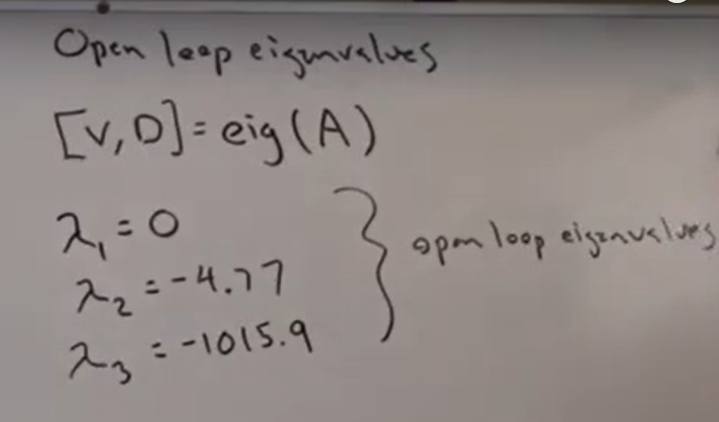 Open loop eigenvalues
[V,D]=eig(A)
λ₁=0
λ₂=-4.77
λ₃=-1015.9
open loop eigenvalues